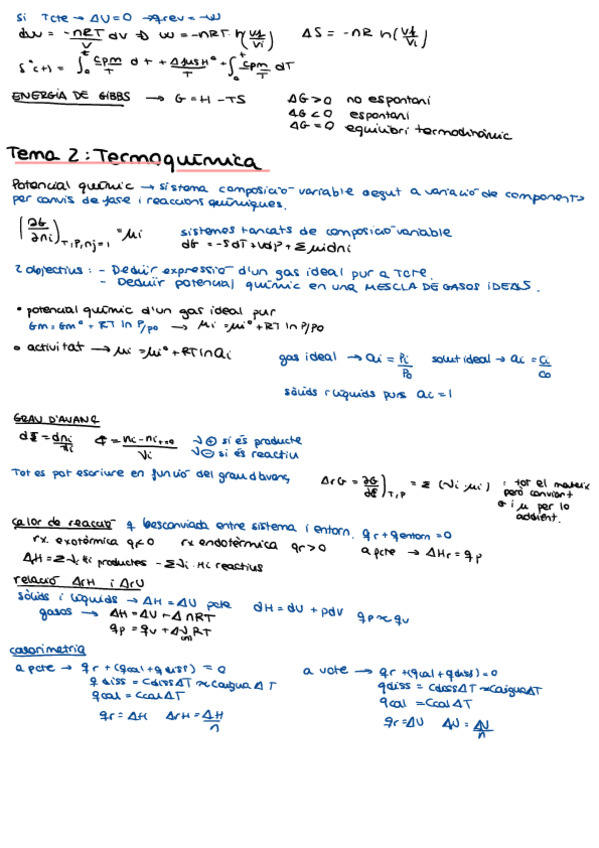 Si Tcte → ΔU=0 → qrev = -W
dw = -nRT/V dv ⇒ W = -nRT ln(Vf/Vi) ΔS = -nR ln(Vf/Vi)
S°(t) = ∫₀ᵗ Cpm/T dT + ΔfusH°/T + ∫₀ᵗ Cpm/T dT
ENERGIA DE GIBBS → G = H - TS ΔG > 0 no espontani
ΔG < 0 espontani
ΔG = 0 equilibri termodinàmic
Tema 2: Termoquímica
Potencial químic → sistema composició variable degut a variació de components
per canvis de fase i reaccions químiques.
(∂G/∂ni)T,P,nj=1 = μi sistemes tancats de composició variable
dG = -SdT + VdP + Σμidni
2 objectius: - Deduir expressió d'un gas ideal pur a Tcte.
- Deduir potencial químic en una MESCLA DE GASOS IDEALS.
• potencial químic d'un gas ideal pur
Gm = Gm° + RT ln P/P0 → μi = μi° + RT ln P/P0
• activitat → μi = μi° + RT ln ai gas ideal → ai = Pi/P0 solut ideal → ai = Ci/C0
sòlids i líquids purs ai = 1
GRAU D'AVANÇ
dξ = dni/νi ξ = ni - ni,t=0/νi ν ⊕ si és producte
ν ⊖ si és reactiu
Tot es pot escriure en funció del grau d'avanç ΔrG = ∂G/∂ξ)T,P = Σ (νi·μi) : tot el mateix
però canviant
G i μ per lo
adient.
Calor de reacció q bescanviada entre sistema i entorn. qr + qentorn = 0
rx. exotèrmica qr<0 rx endotèrmica qr > 0 a pcte → ΔHr = qp
ΔH = Σνi Hi productes - Σνi · Hi reactius
relació ΔrH i ΔrU
Sòlids i líquids → ΔH = ΔU pcte dH = dU + pdV qp ≈ qv
gasos → ΔH = ΔU - ΔnRT
qp = qv + ΔνRT
calorimetria
a pcte → qr + (qcal + qdiss) = 0 a vcte → qr + (qcal + qdiss) = 0
qdiss = CdissΔT ≈ CaiguaΔT qdiss = CdissΔT ≈ CaiguaΔT
qcal = CcalΔT qcal = CcalΔT
qr = ΔH ΔrH = ΔH/n qr = ΔU ΔU = ΔU/n